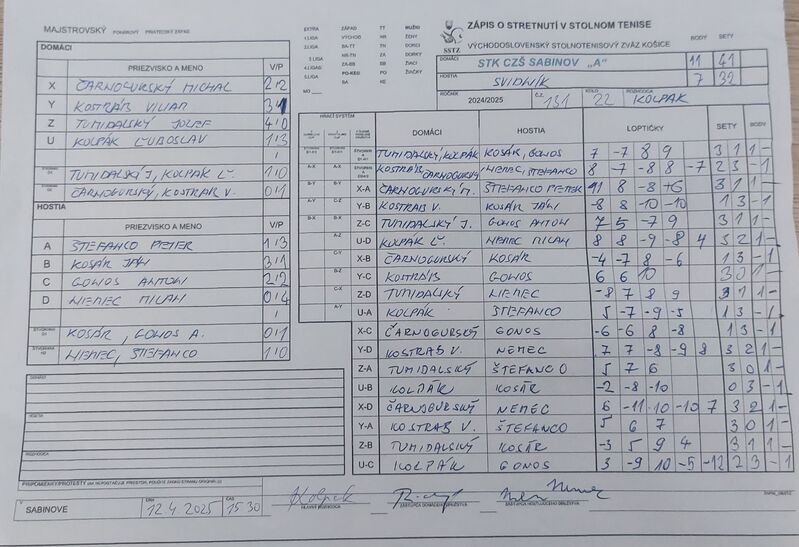 MAJSTROVSKÝ POHÁROVÝ PRIATEĽSKÝ ZÁPAS
EXTRA ZÁPAD TT MUŽI
1.LIGA VÝCHOD NR ŽENY
2.LIGA BA-TT TN DORCI
3.LIGA ZA-TN ZA DORKY
4.LIGA ZA-BB BB ŽIACI
5.LIGA PO-KE PO ŽIAČKY
BA KE
SSTZ
ZÁPIS O STRETNUTÍ V STOLNOM TENISE
VÝCHODOSLOVENSKÝ STOLNOTENISOVÝ ZVÄZ KOŠICE
BODY SETY
DOMÁCI STK CZŠ SABINOV „A" 11 41
HOSTIA SVIDNÍK 7 32
ROČNÍK 2024/2025 Č.Z. 131 KOLO 22 ROZHODCA KOLPÁK
DOMÁCI
PRIEZVISKO A MENO V/P
X ČARNOGURSKÝ MICHAL 2/2
Y KOSTRÁB VILIAM 3/1
Z TUMIDALSKÝ JOZEF 4/0
U KOLPÁK ĽUBOSLAV 1/3
TUMIDALSKÝ J, KOLPÁK Ľ. 1/0
ČARNOGURSKÝ, KOSTRAB V. 0/1
HOSTIA
PRIEZVISKO A MENO V/P
A ŠTEFANCO PETER 1/3
B KOSÁR JÁN 3/1
C GONOS ANTON 2/2
D NEMEC MILAN 0/4
KOSÁR, GONOS A. 0/1
NEMEC, ŠTEFANCO 1/0
HRACÍ SYSTÉM DOMÁCI HOSTIA LOPTIČKY SETY BODY
TUMIDALSKÝ, KOLPAK KOSÁR, GONOS 7 -7 8 9 3 1 1 -
KOSTRAB ČARNOGURSKÝ NEMEC, ŠTEFANCO 8 -7 -8 8 -7 2 3 - 1
X-A ČARNOGURSKÝ M. ŠTEFANCO PETER 11 8 -8 +6 3 1 1 -
Y-B KOSTRAB V. KOSÁR JÁN -8 8 -10 -10 1 3 - 1
Z-C TUMIDALSKÝ J. GONOS ANTON 7 5 -7 9 3 1 1 -
U-D KOLPAK Ľ. NEMEC MILAN 8 8 -9 -8 4 3 2 1 -
X-B ČARNOGURSKÝ KOSÁR -4 -7 8 -6 1 3 - 1
Y-C KOSTRÁB GONOS 6 6 10 3 0 1 -
Z-D TUMIDALSKÝ NEMEC -8 7 8 9 3 1 1 -
U-A KOLPAK ŠTEFANCO 5 -7 -9 -5 1 3 - 1
X-C ČARNOGURSKÝ GONOS -6 -6 8 -8 1 3 - 1
Y-D KOSTRAB V. NEMEC 7 7 -8 -9 8 3 2 1 -
Z-A TUMIDALSKÝ ŠTEFANCO 5 7 6 3 0 1 -
U-B KOLPÁK KOSÁR -2 -8 -10 0 3 - 1
X-D ČARNOGURSKÝ NEMEC 6 -11 10 -10 7 3 2 1 -
Y-A KOSTRAB V. ŠTEFANCO 5 6 7 3 0 1 -
Z-B TUMIDALSKÝ KOSÁR -3 5 9 4 3 1 1 -
U-C KOLPÁK GONOS 3 -9 10 -5 -12 2 3 - 1
DOMÁCI
HOSTIA
ROZHODCA
PRIPOMIENKY/PROTESTY
V SABINOVE DŇA 12.4 2025 ČAS 15 30
HLAVNÝ ROZHODCA
ZÁSTUPCA DOMÁCEHO DRUŽSTVA
ZÁSTUPCA HOSŤUJÚCEHO DRUŽSTVA